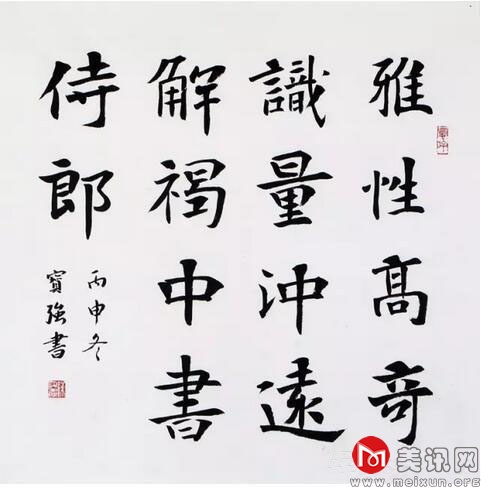 雅性高奇
識量沖遠
解褐中書
侍郎
丙申冬
寶強書
美讯网
www.meixun.org